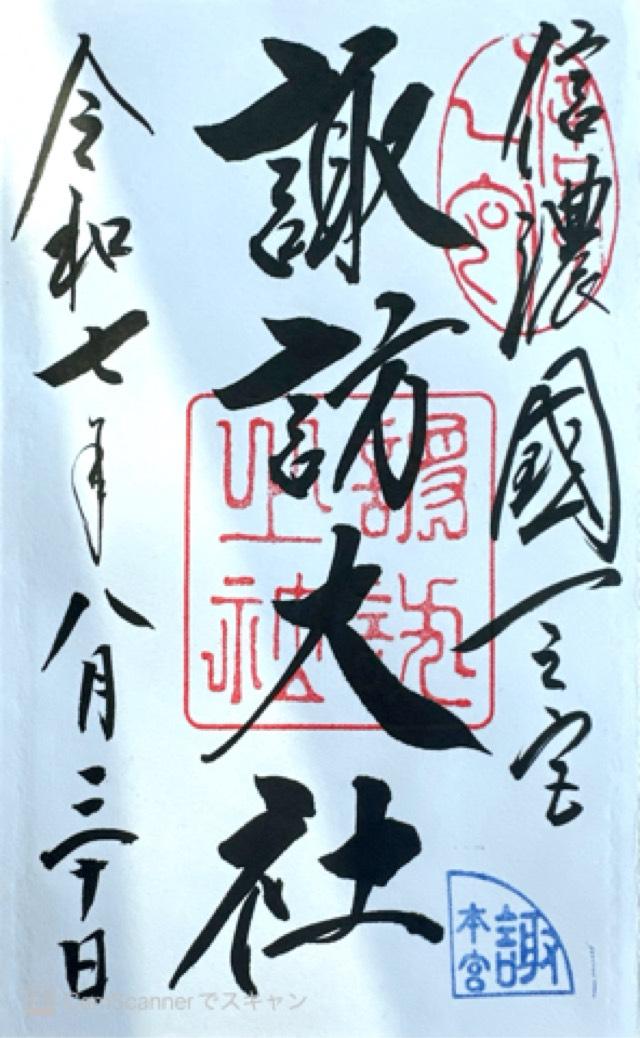 信濃國一之宮
諏訪大社
令和七年八月三十日
諏訪
之神
諏
本宮
CamScannerでスキャン